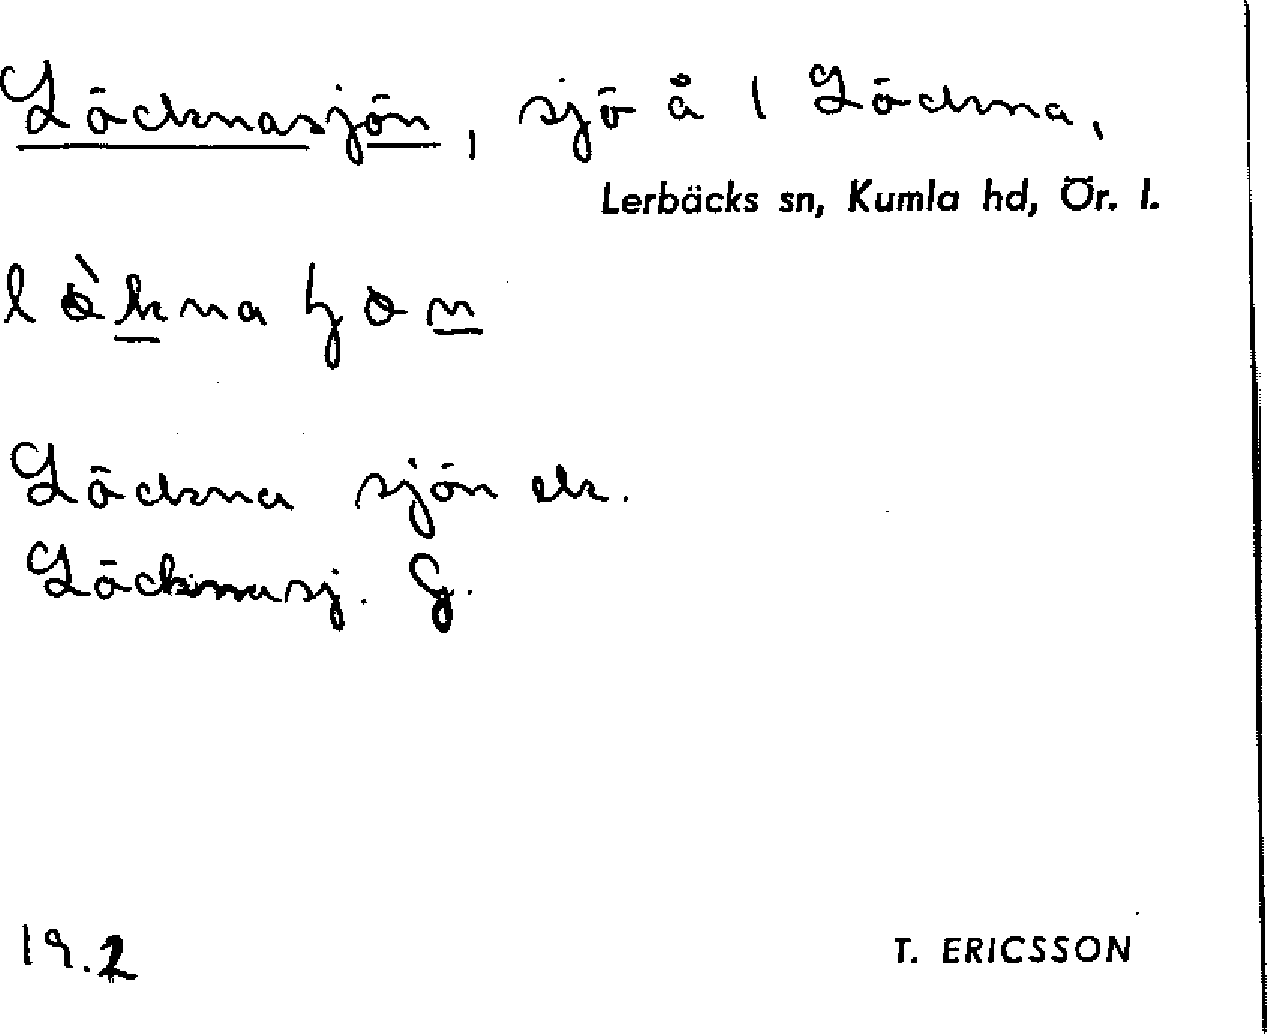 Löcknasjön, sjö å 1 Löckna,
Lerbäcks sn, Kumla hd, Ör. l.
Löckna sjön ek.
Löcknasj. G.
19.2
T. ERICSSON